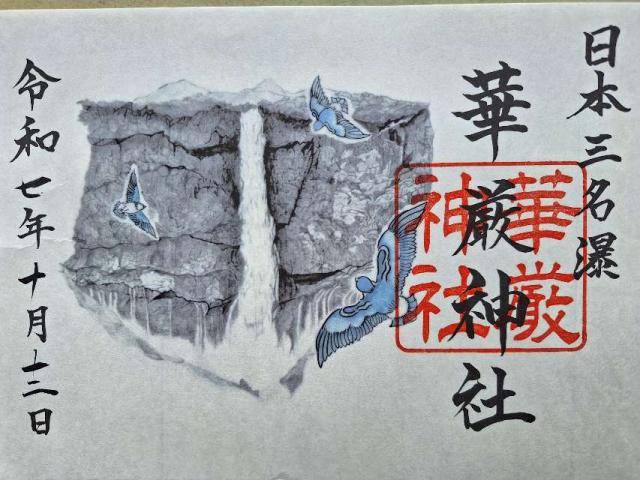 日本三名瀑
華厳神社
華厳
神社
令和七年十月十三日